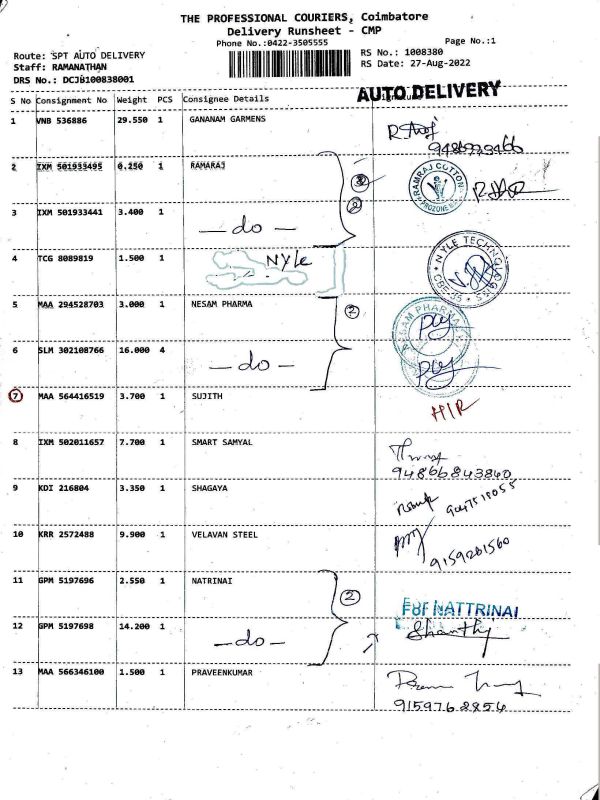 THE PROFESSIONAL COURIERS, Coimbatore
Delivery Runsheet - CMP
Phone No.:0422-3505555 Page No.:1
Route: SPT AUTO DELIVERY RS No.: 1008380
Staff: RAMANATHAN RS Date: 27-Aug-2022
DRS No.: DCJB100838001
AUTO DELIVERY
S No Consignment No Weight PCS Consignee Details
1 VNB 536886 29.550 1 GANANAM GARMENS
2 IXM 501933495 0.250 1 RAMARAJ
RAMRAJ COTTON
3 IXM 501933441 3.400 1 — do — 2
4 TCG 8089819 1.500 1 Nyle
NYLE TECHNOLOGIES
5 MAA 294528703 3.000 1 NESAM PHARMA 2
NESAM PHARMA
6 SLM 302108766 16.000 4 — do —
7 MAA 564416519 3.700 1 SUJITH
H/R
8 IXM 502011657 7.700 1 SMART SAMYAL
94866843840
9 KDI 216804 3.350 1 SHAGAYA
10 KRR 2572488 9.900 1 VELAVAN STEEL
9159261560
11 GPM 5197696 2.550 1 NATRINAI 2
FBF NATTRINAI
12 GPM 5197698 14.200 1 — do — Shanthi
13 MAA 566346100 1.500 1 PRAVEENKUMAR
9159762856